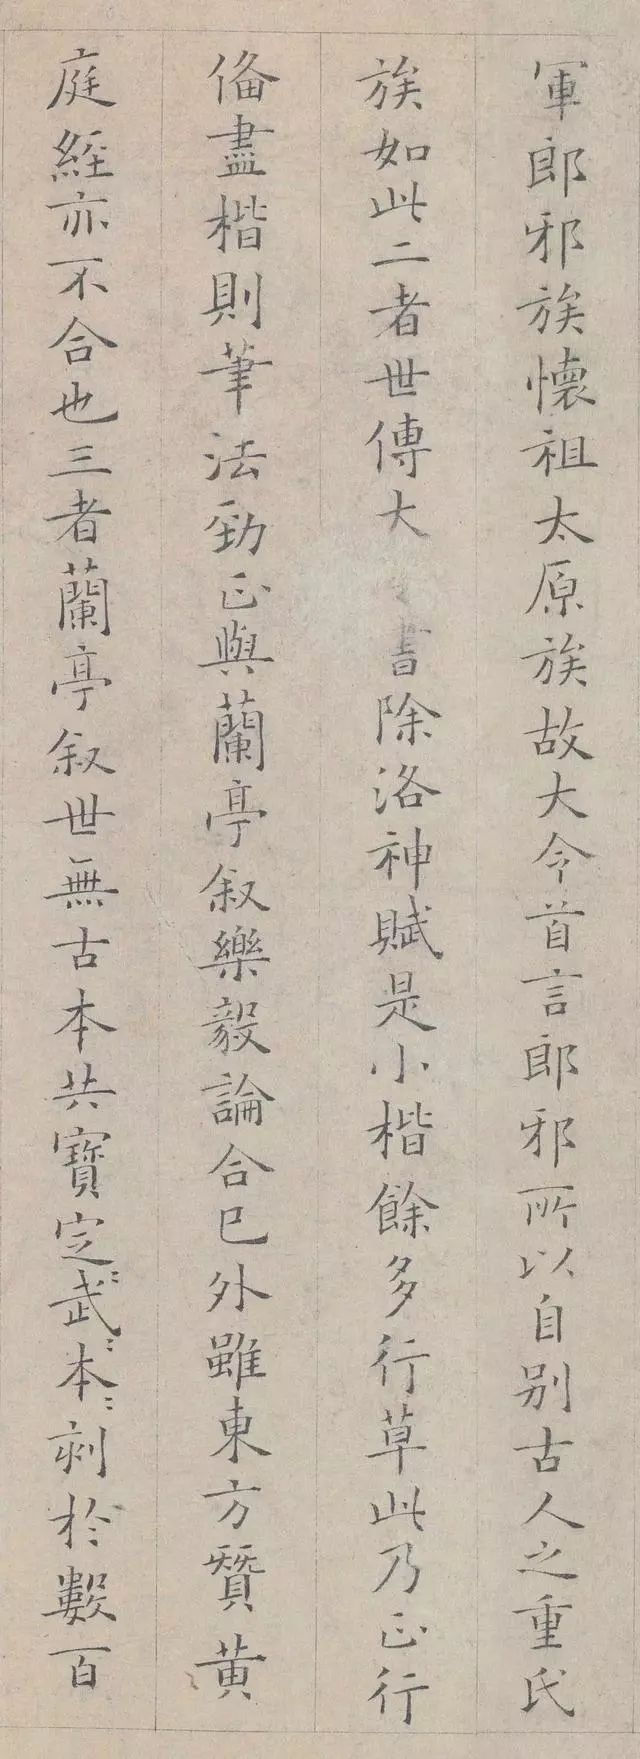 軍郎邪族懷祖太原族故大令首言郎邪所以自别古人之重氏
族如此二者世傳大令書除洛神賦是小楷餘多行草此乃正行
俻盡楷則筆法勁正與蘭亭叙樂毅論合已外雖東方贊黄
庭經亦不合也三者蘭亭叙世無古本共寶定武本刻於數百